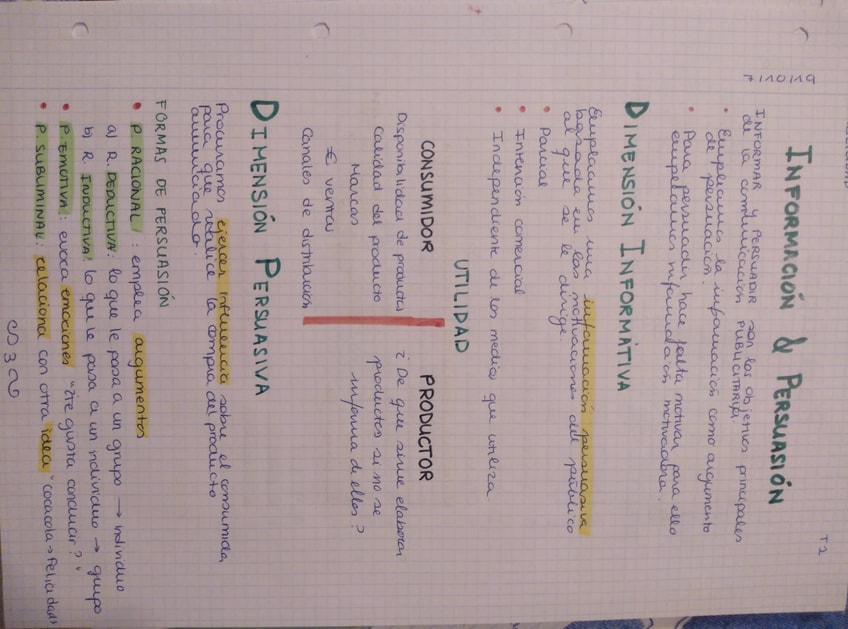 T2
7/10/19
INFORMACIÓN & PERSUASIÓN
INFORMAR Y PERSUADIR son los objetivos principales
de la comunicación PUBLICITARIA.
• Empleamos la información como argumento
de persuasión.
• Para persuadir hace falta motivar para ello
empleamos información motivadora.
DIMENSIÓN INFORMATIVA
Empleamos una información persuasiva
basada en las motivaciones del público
al que se le dirige.
• Parcial
• Intención comercial
• Independiente de los medios que utiliza
UTILIDAD
CONSUMIDOR
Disponibilidad de productos
Calidad del producto
Marcas
€ ventas
Canales de distribución
PRODUCTOR
¿De que sirve elaborar
productos si no se
informa de ellos?
DIMENSIÓN PERSUASIVA
Procuramos ejercer influencia sobre el consumidor
para que realice la compra del producto
anunciado.
FORMAS DE PERSUASIÓN
• P. RACIONAL: emplea argumentos
a) R. DEDUCTIVA: lo que le pasa a un grupo → individuo
b) R. INDUCTIVA: lo que le pasa a un individuo → grupo
• P. EMOTIVA: evoca emociones "¿te gusta conducir?"
• P. SUBLIMINAL: relaciona con otra idea "cocacola → felicidad"